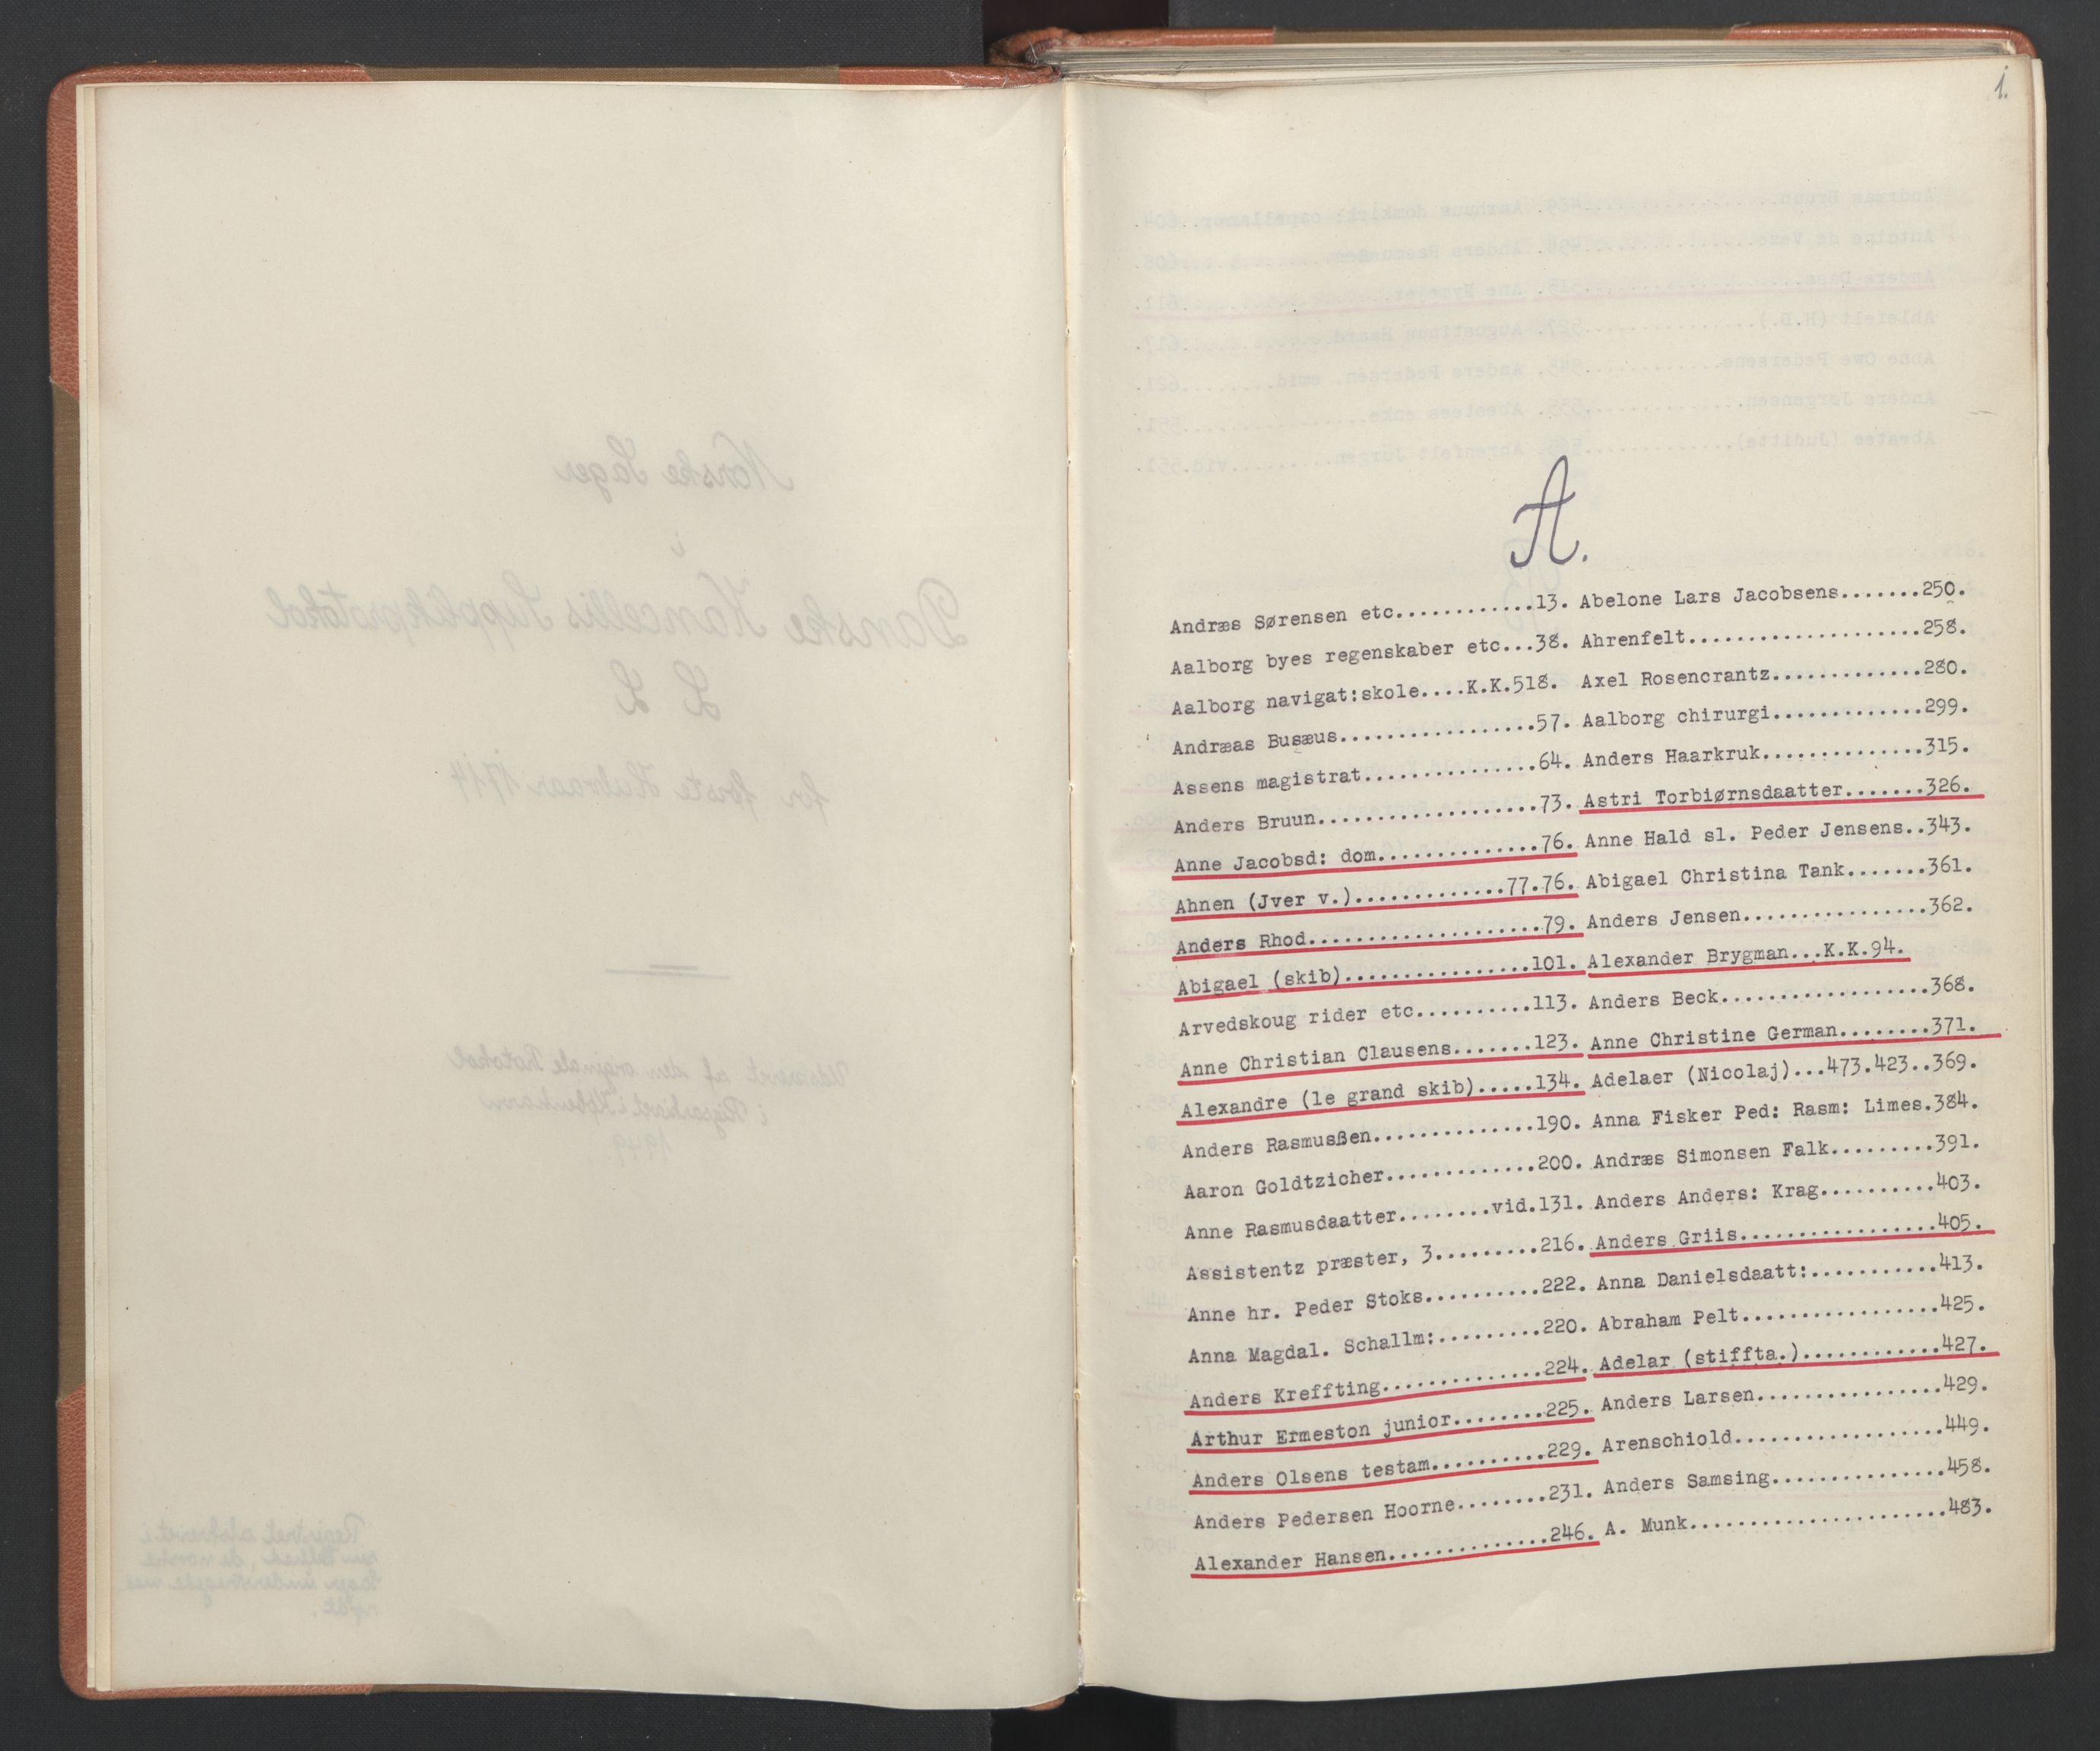 1.
A.
Andræs Sørensen etc............13.
Aalborg byes regenskaber etc...38.
Aalborg navigat:skole....K.K.518.
Andræas Busæus.................57.
Assens magistrat...............64.
Anders Bruun...................73.
Anne Jacobsd: dom..............76.
Ahnen (Jver v.)............77.76.
Anders Rhod....................79.
Abigael (skib)................101.
Arvedskoug rider etc..........113.
Anne Christian Clausens.......123.
Alexandre (le grand skib).....134.
Anders Rasmusßen..............190.
Aaron Goldtzicher.............200.
Anne Rasmusdaatter........vid.131.
Assistentz præster, 3.........216.
Anne hr. Peder Stoks..........222.
Anna Magdal. Schallm:.........220.
Anders Kreffting..............224.
Arthur Ermeston junior........225.
Anders Olsens testam..........229.
Anders Pedersen Hoorne........231.
Alexander Hansen..............246.
Abelone Lars Jacobsens.......250.
Ahrenfelt....................258.
Axel Rosencrantz.............280.
Aalborg chirurgi.............299.
Anders Haarkruk..............315.
Astri Torbiørnsdaatter.......326.
Anne Hald sl. Peder Jensens..343.
Abigael Christina Tank.......361.
Anders Jensen................362.
Alexander Brygman...K.K.94.
Anders Beck..................368.
Anne Christine German........371.
Adelaer (Nicolaj)...473.423..369.
Anna Fisker Ped: Rasm: Limes.384.
Andræs Simonsen Falk.........391.
Anders Anders: Krag..........403.
Anders Griis.................405.
Anna Danielsdaatt:...........413.
Abraham Pelt.................425.
Adelar (stiffta.)............427.
Anders Larsen................429.
Arenschiold..................449.
Anders Samsing...............458.
A. Munk......................483.